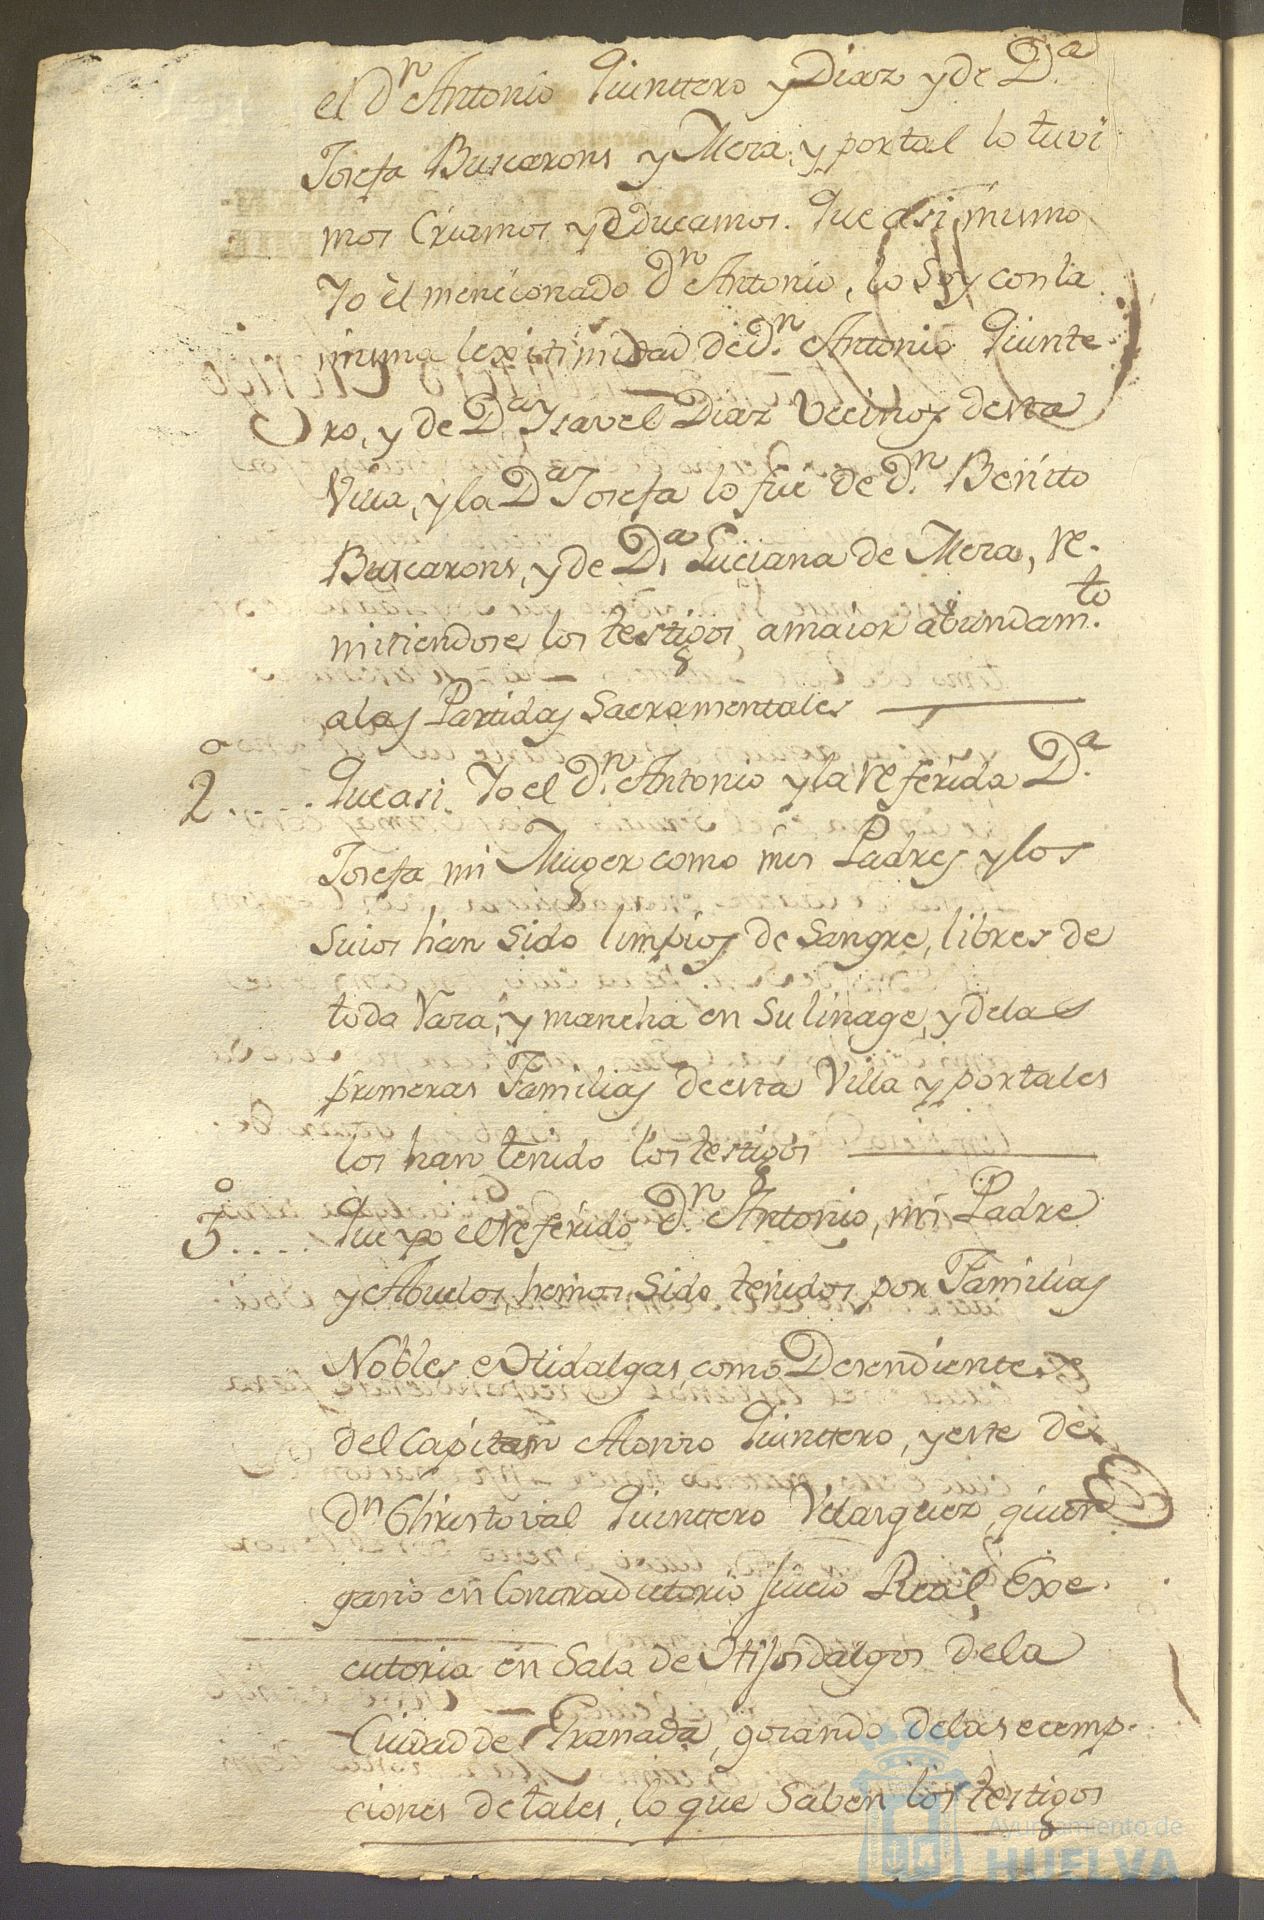 el Dn Antonio Quinttero y Diaz y de D.a
Josefa Buscarons y Mora, y por tal lo tuvi
mos Criamos y educamos. Que asi mismo
Yo el mencionado Dn Antonio, lo Soy con la
misma lexitimidad de Dn. Antonio Quinte
ro, y de Da Ysavel Diaz Vecinos desta
Villa, y la Da Josefa lo fue de Dn. Benito
Buscarons, y de D.a Luciana de Mora, re-
mitiendose los testigos, a maior abundam.to
a las Partidas Sacramentales
2o.... Que asi Yo el Dn. Antonio y la referida D.a
Josefa mi Muger como mis Padres y los
Suios han Sido limpios de Sangre, libres de
toda Vara, y mancha en Su linage, y de las
primeras Familias de esta Villa y por tales
los han tenido los testigos
3o.... Que yo el referido Dn. Antonio, mi Padre
y Abuelos, hemos Sido tenidos por Familias
Nobles e Hidalgas como Desendientes
del Capitan Alonso Quinttero, y este de
Dn Christoval Quinttero Velasquez, quien
gano en Contradictorio Juicio Real Exe-
cutoria en Sala de Hijosdalgos de la
Ciudad de Granada, gosando de las ecemp-
ciones de tales, lo que Saben los testigos
Ayuntamiento de
HUELVA